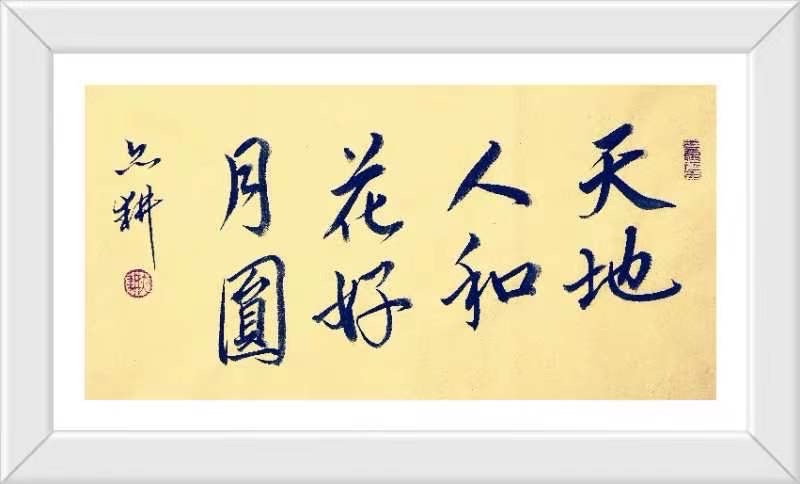 天地
人和
花好
月圓